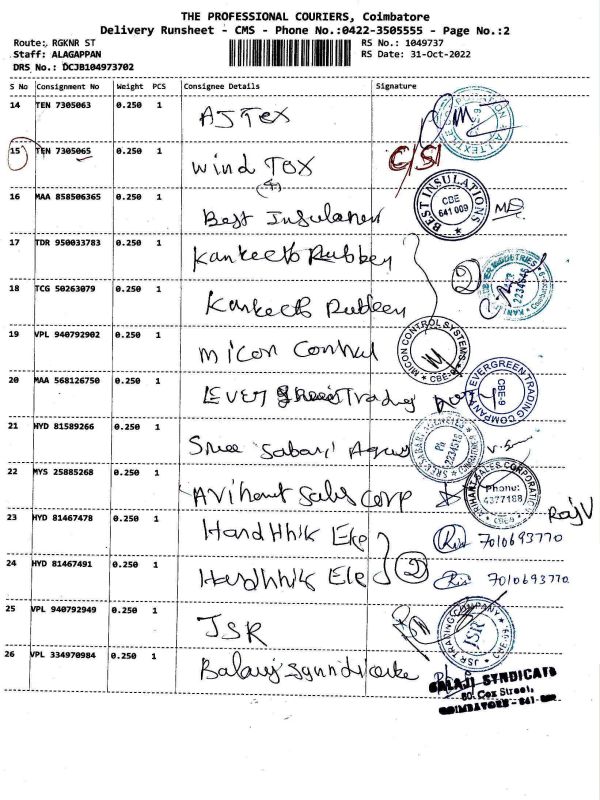 THE PROFESSIONAL COURIERS, Coimbatore
Delivery Runsheet - CMS - Phone No.:0422-3505555 - Page No.:2
Route: RGKNR ST
Staff: ALAGAPPAN
DRS No.: DCJB104973702
RS No.: 1049737
RS Date: 31-Oct-2022
S No Consignment No Weight PCS Consignee Details Signature
14 TEN 7305063 0.250 1 AJ Tex
15 TEN 7305065 0.250 1 Wind Tox
16 MAA 858506365 0.250 1 Best
BEST INSULATIONS CBE 641 009
17 TDR 950033783 0.250 1
18 TCG 50263079 0.250 1
2234546
19 VPL 940792902 0.250 1 Micon Control
MICON CONTROL SYSTEMS CBE-9
20 MAA 568126750 0.250 1 Trading
EVERGREEN TRADING COMPANY CBE-9
21 HYD 81589266 0.250 1 Sree Sabari
Ph 2234318
22 MYS 25885268 0.250 1 Arihant Sales Corp
ARIHANT SALES CORPORATION Phone: 4377188 CBE-9
RajV
23 HYD 81467478 0.250 1 7010693770
24 HYD 81467491 0.250 1 2 7010693770
25 VPL 940792949 0.250 1 JSR
JSR TRADING COMPANY JSR CBE-9
26 VPL 334970984 0.250 1 Balaji
BALAJI SYNDICATE
80. Cox Street,
COIMBATORE - 641